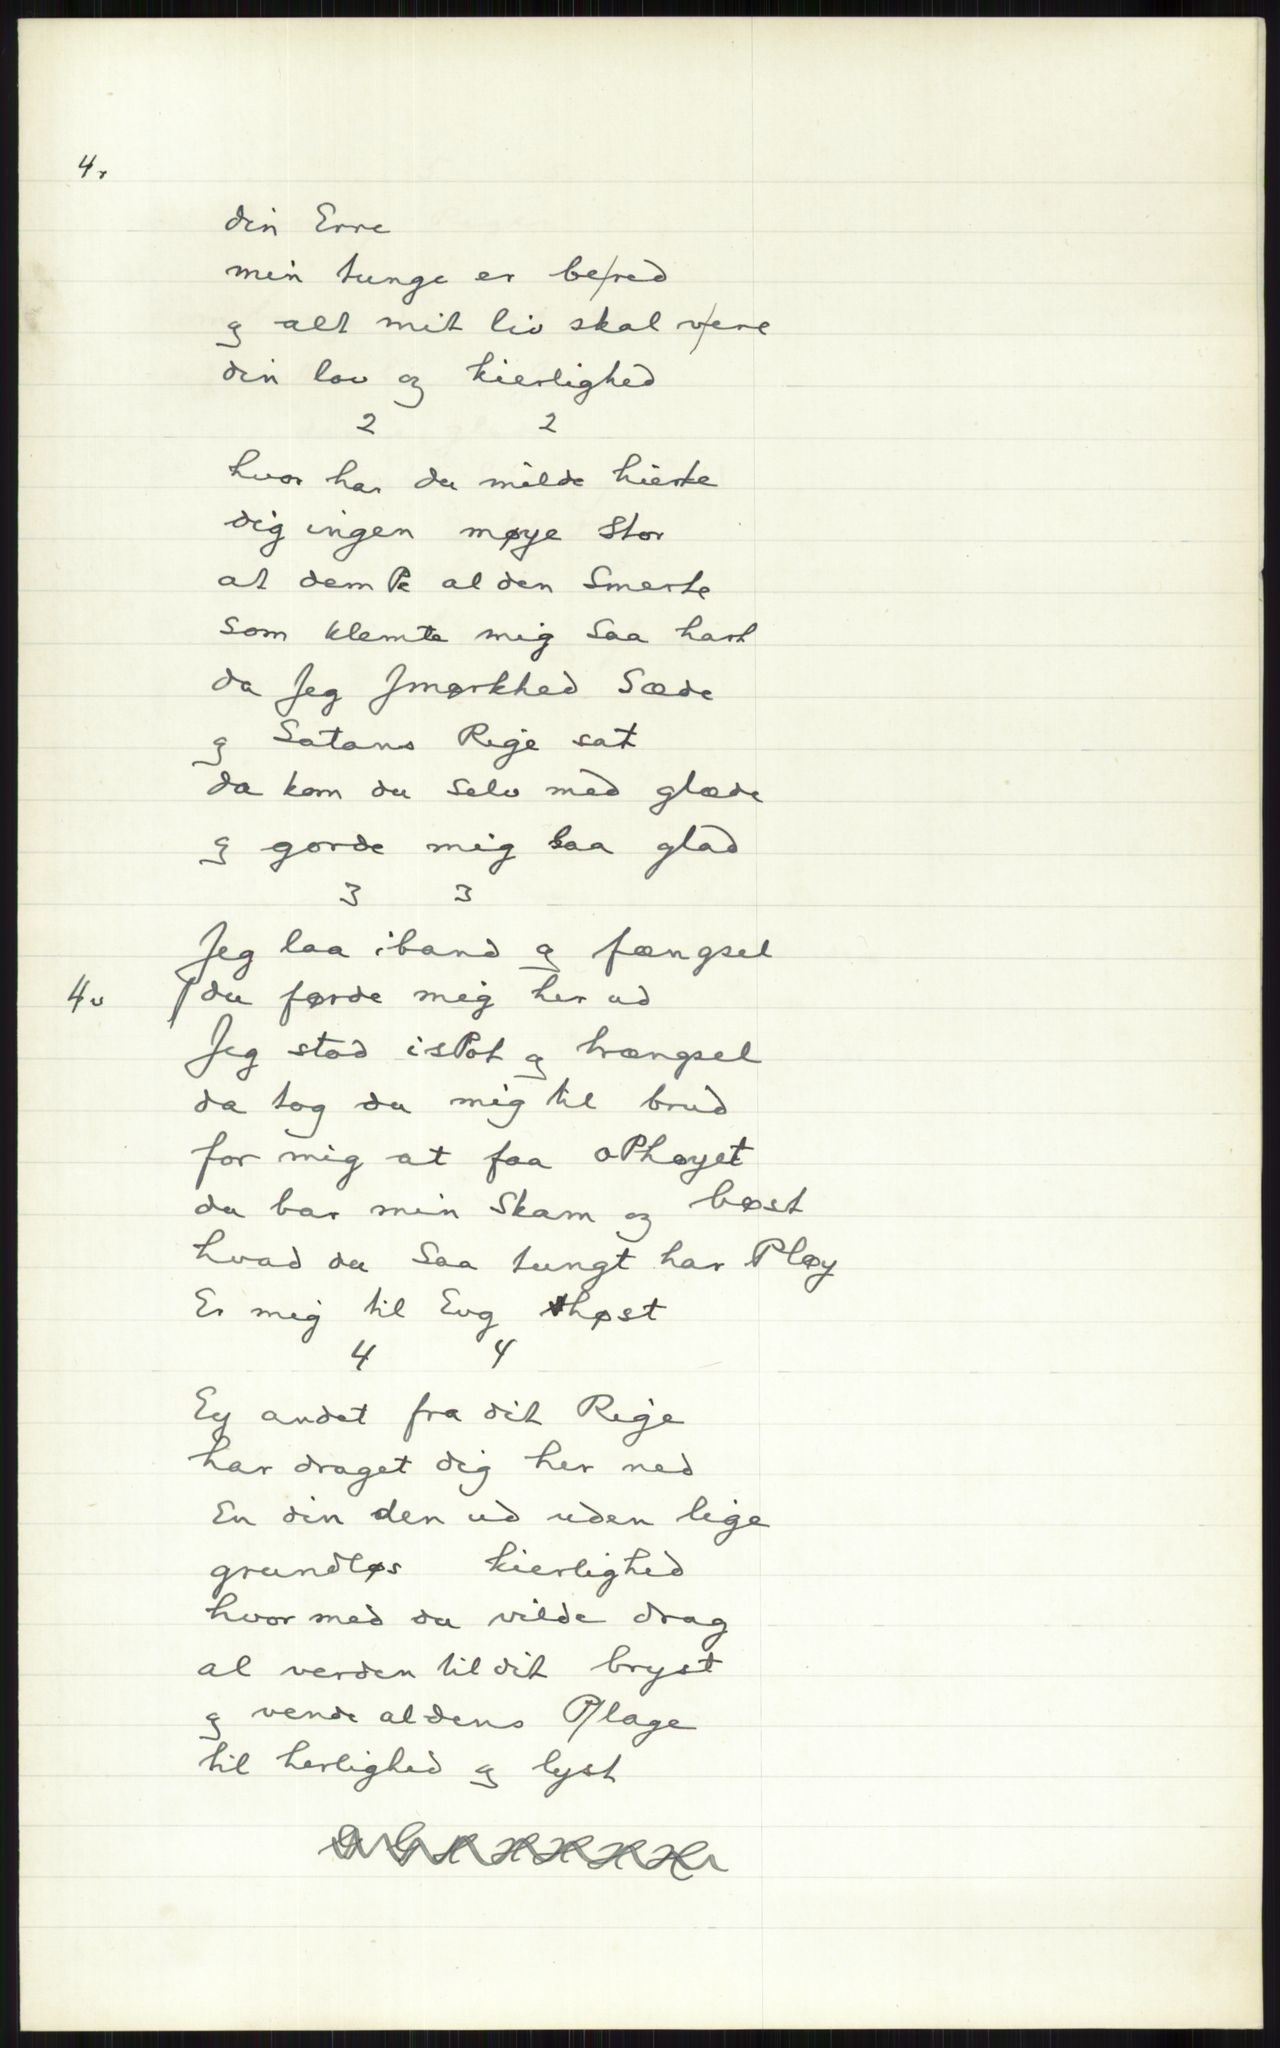 4r
din Erre
min tunge er be/red
og alt mit liv skal v/ere
din lov og kierlighed
2 2
hvor har du milde hierte
dig ingen møye Stor
at dem Pe al den Smerte
som klemte mig Saa hart
da Jeg Jmørkhed Sæde
og Satans Rige sat
da kom du selv med glæde
og gorde mig saa glad
3 3
Jeg laa iband og fængsel
4v / du førde mig her ud
Jeg stod isPot og trængsel
da tog du mig til brud
for mig at faa oPhøyet
du bar min Skam og bøst
hvad du Saa tungt har Pløy
Er mig til Evg høst
4 4
Ey andet fra dit Rige
har draget dig her ned
En din den ud uden lige
grundløs kierlighed
hvor med du vilde drag
al verden til dit bryst
og vende al dens P/lage
til herlighed og lyst